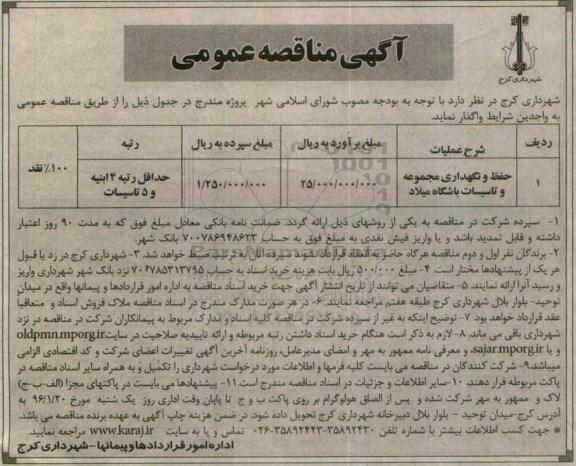 آگهی مناقصه عمومی
شهرداری کرج
شهرداری کرج در نظر دارد با توجه به بودجه مصوب شورای اسلامی شهر پروژه مندرج در جدول ذیل را از طریق مناقصه عمومی
به واجدین شرایط واگذار نماید.
ردیف شرح عملیات مبلغ برآورد به ریال مبلغ سپرده به ریال رتبه ۱۰۰٪ نقد
۱ حفظ و نگهداری مجموعه و تاسیسات باشگاه میلاد ۲۵/۰۰۰/۰۰۰/۰۰۰ ۱/۲۵۰/۰۰۰/۰۰۰ حداقل رتبه ۴ ابنیه و ۵ تاسیسات
۱- سپرده شرکت در مناقصه به یکی از روشهای ذیل ارائه گردد. ضمانت نامه بانکی معادل مبلغ فوق که به مدت ۹۰ روز اعتبار
داشته و قابل تمدید باشد و یا واریز فیش نقدی به مبلغ فوق به حساب ۷۰۰۷۸۶۹۴۸۶۲۳ بانک شهر.
۲- برندگان نفر اول و دوم مناقصه هرگاه حاضر به انعقاد قرارداد نشوند سپرده آنان به ترتیب ضبط خواهد شد. ۳- شهرداری کرج در رد یا قبول
هر یک از پیشنهادها مختار است. ۴- مبلغ ۵۰۰/۰۰۰ ریال بابت هزینه خرید اسناد به حساب ۷۰۰۷۸۵۳۱۳۷۹۵ نزد بانک شهر شهرداری واریز
و رسید آنرا ارائه نمایند. ۵- متقاضیان می توانند از تاریخ انتشار آگهی جهت خرید اسناد مناقصه به اداره امور قراردادها و پیمانها واقع در میدان
توحید- بلوار بلال شهرداری کرج طبقه هفتم مراجعه نمایند. ۶- در هر صورت مدارک مندرج در اسناد مناقصه ملاک فروش اسناد و متعاقبا
عقد قرارداد خواهد بود. ۷- توضیح اینکه به غیر از سپرده شرکت در مناقصه کلیه اسناد و مدارک مربوط به پیمانکاران شرکت در مناقصه در نزد
شهرداری باقی می ماند. ۸- لازم به ذکر است هنگام خرید اسناد داشتن رتبه مربوطه و ارائه تاییدیه صلاحیت در سایت oldpmn.mporg.ir
و یا sajar.mporg.ir و معرفی نامه ممهور به مهر و امضای مدیرعامل، روزنامه آخرین آگهی تغییرات اعضای شرکت و کد اقتصادی الزامی
میباشد. ۹- شرکت کنندگان در مناقصه می بایست کلیه فرمها و اطلاعات مورد درخواست شهرداری را تکمیل و به همراه سایر اسناد مناقصه در
پاکت مربوطه قرار دهند. ۱۰- سایر اطلاعات و جزئیات در اسناد مناقصه مندرج است. ۱۱- پیشنهادها می بایست در پاکتهای مجزا (الف-ب-ج)
لاک و ممهور به مهر شرکت شده و پس از الصاق هولوگرام بر روی پاکت ب و ج تا پایان وقت اداری روز یک شنبه مورخ ۹۶/۱/۲۰ به
آدرس کرج-میدان توحید - بلوار بلال دبیرخانه شهرداری کرج تحویل داده شود. در ضمن هزینه چاپ آگهی به عهده برنده مناقصه می باشد.
* جهت کسب اطلاعات بیشتر با شماره تلفن ۳۵۸۹۲۴۳۰-۰۲۶-۳۵۸۹۲۴۴۳ تماس و یا به سایت www.karaj.ir مراجعه نمایید.
اداره امور قراردادها و پیمانها - شهرداری کرج